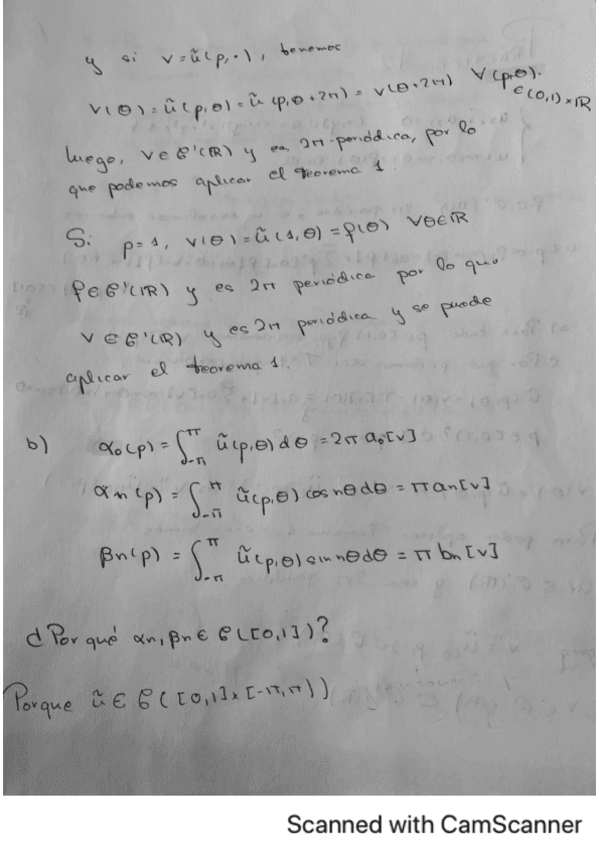 y si v=ũ(ρ,·), tenemos
v(θ)=ũ(ρ,θ)=ũ(ρ,θ+2π)=v(θ+2π) ∀(ρ,θ).
∈(0,1)×ℝ
luego, v∈C¹(ℝ) y es 2π-periódica, por lo
que podemos aplicar el teorema 1.
Si ρ=1, v(θ)=ũ(1,θ)=φ(θ) ∀θ∈ℝ
φ∈C¹(ℝ) y es 2π periódica por lo que
v∈C¹(ℝ) y es 2π periódica y se puede
aplicar el teorema 1.
b) α₀(ρ)=∫_{-π}^{π} ũ(ρ,θ)dθ=2π a₀[v]
αn(ρ)=∫_{-π}^{π} ũ(ρ,θ)cos nθdθ=πan[v]
βn(ρ)=∫_{-π}^{π} ũ(ρ,θ)sin nθdθ=π bn[v]
¿Por qué αn,βn∈C([0,1])?
Porque ũ∈C([0,1]×[-π,π])
Scanned with CamScanner